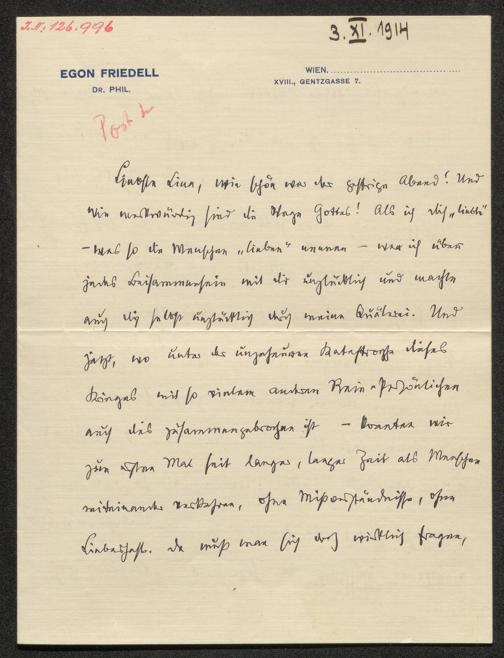 I.N.: 126.996
3. XI. 1914
EGON FRIEDELL
DR. PHIL.
WIEN,
XVIII., GENTZGASSE 7.
Liebste Lina, wie schön war der gestrige Abend! Und
wie merkwürdig sind die Wege Gottes! Als ich dich „liebte"
– was so die Menschen „lieben" nennen – war ich über
jedes Beisammensein mit dir unglücklich und machte
auch dich selbst unglücklich durch meine Quälerei. Und
jetzt, wo unter der ungeheuren Katastrophe dieses
Krieges mit so vielem anderen Rein-Persönlichen
auch dies zusammengebrochen ist – konnten wir
zum ersten Mal seit langer, langer Zeit als Menschen
miteinander verkehren, ohne Mißverständnisse, ohne
da muß man sich doch wirklich fragen,